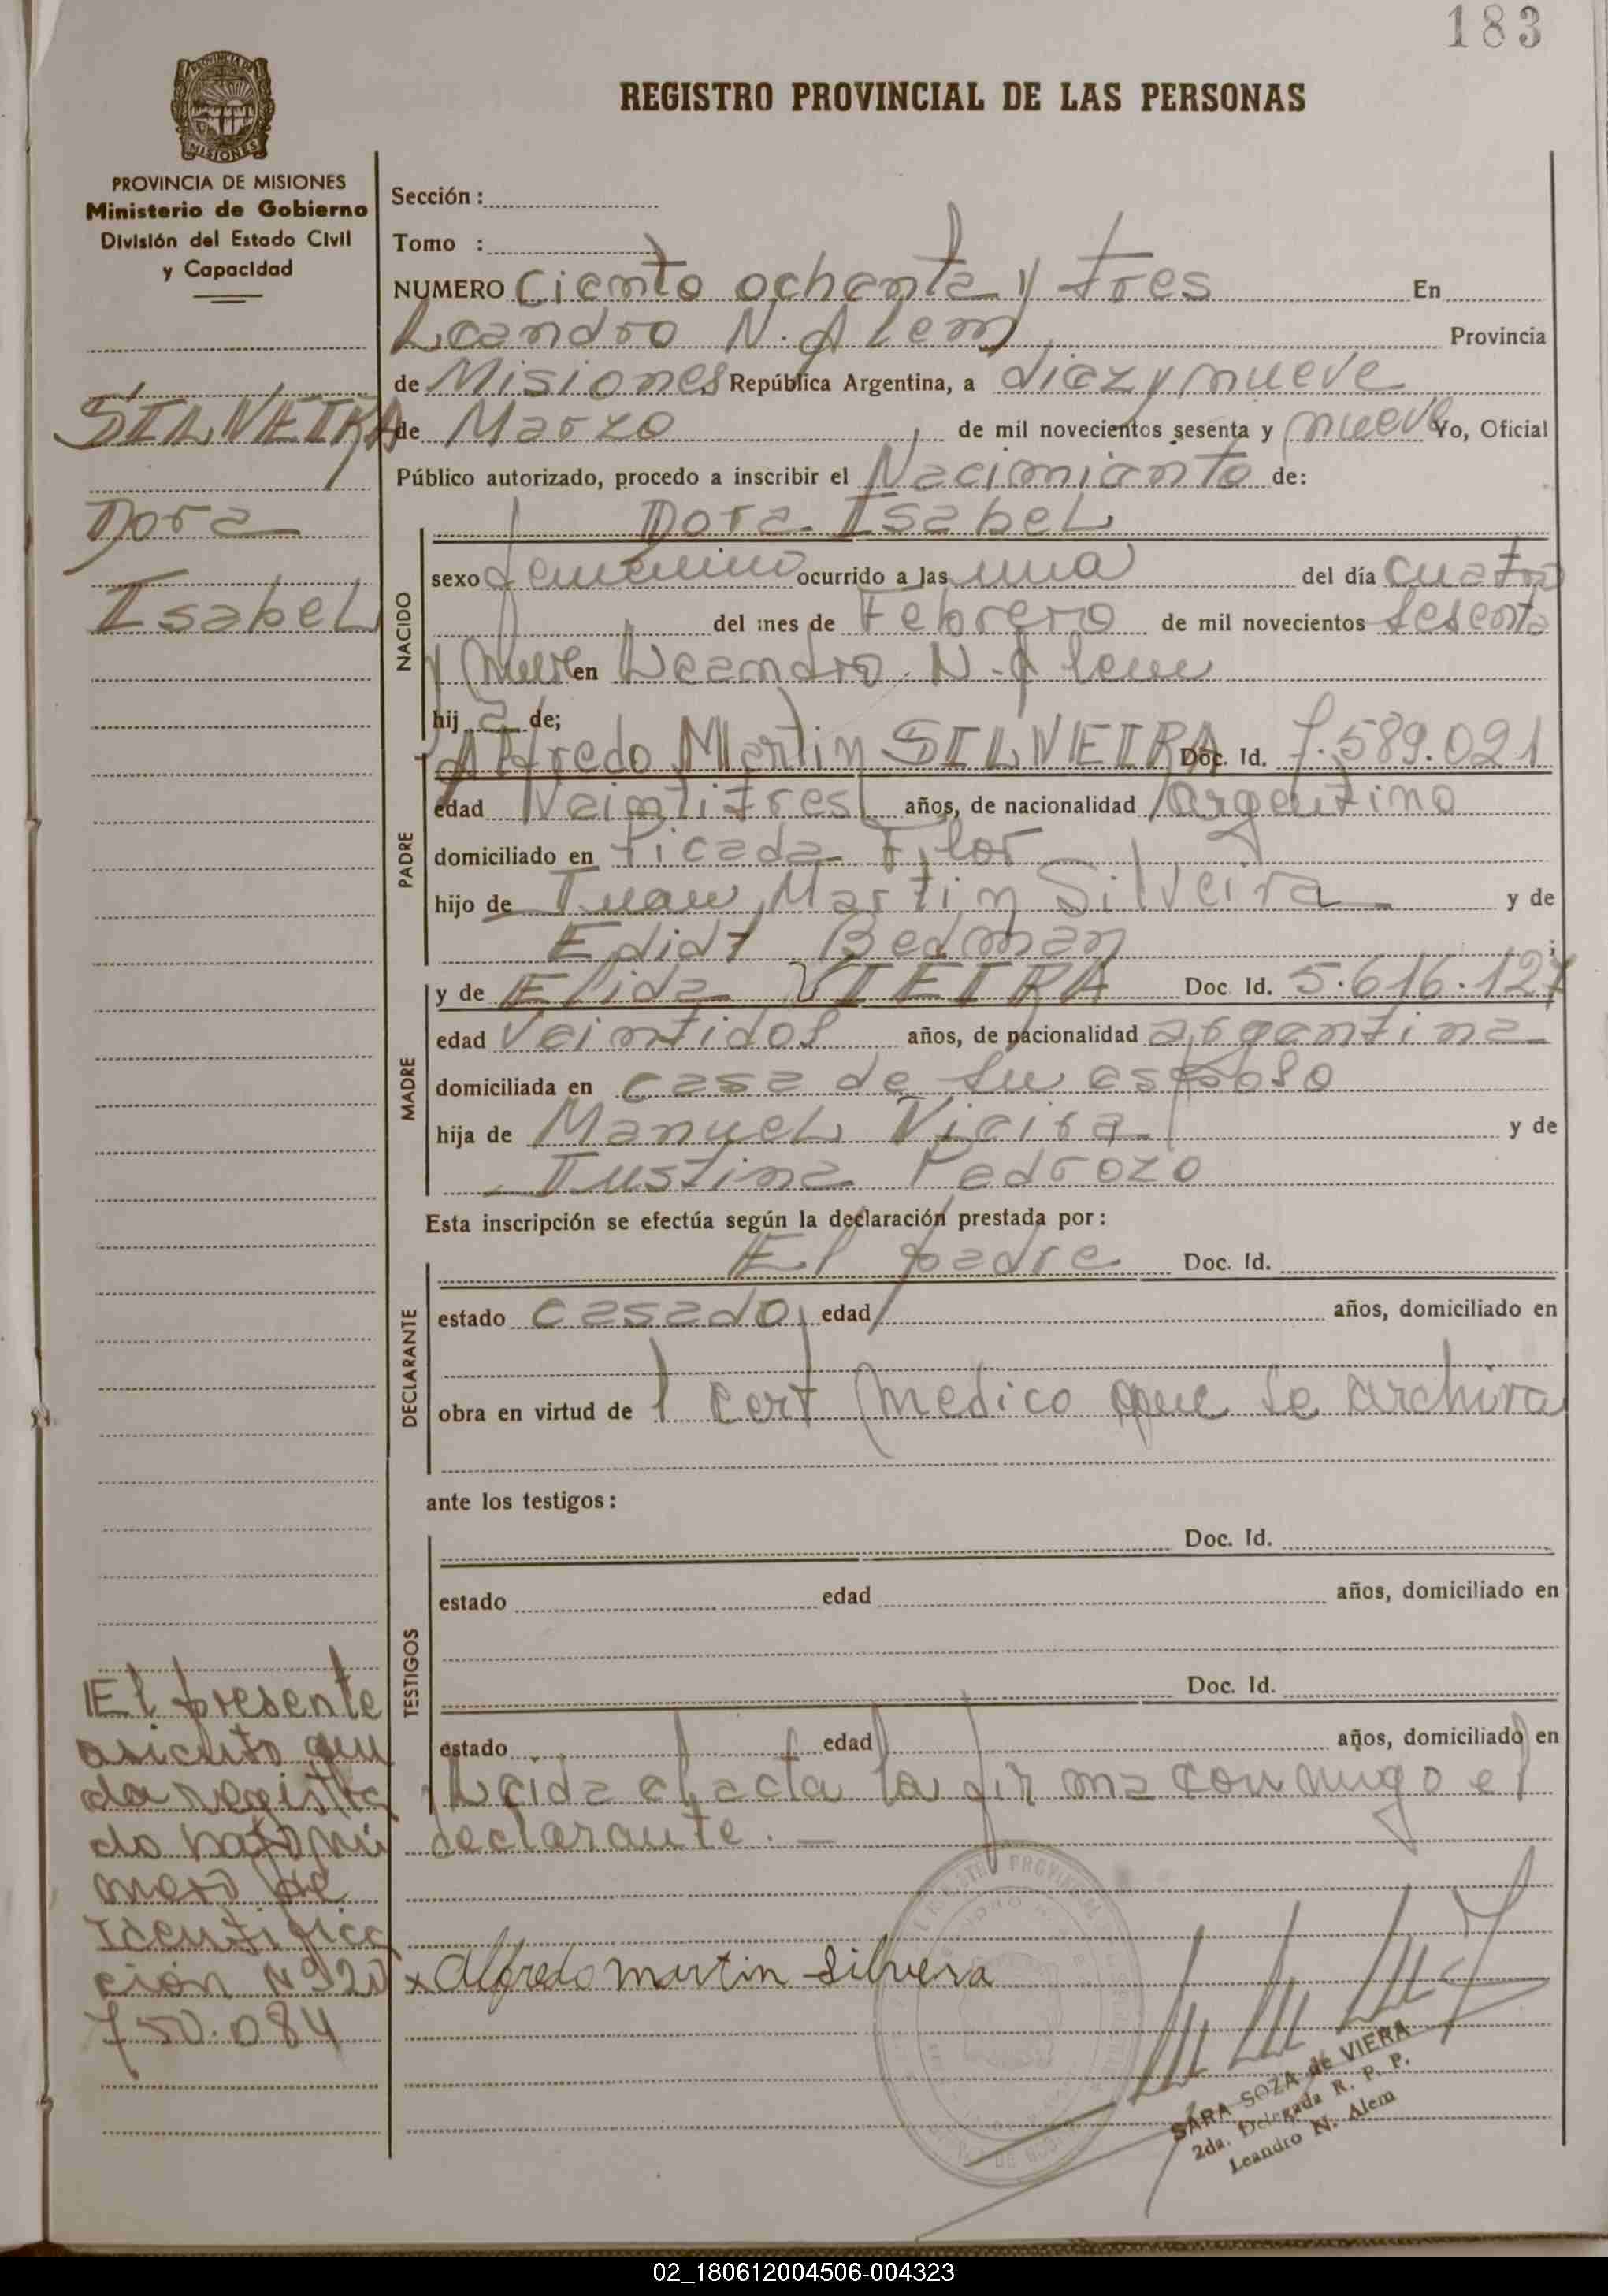 183
REGISTRO PROVINCIAL DE LAS PERSONAS
PROVINCIA DE MISIONES
Ministerio de Gobierno
División del Estado Civil
y Capacidad
SILVEIRA
Dora
Isabel
Sección :
Tomo :
NUMERO Ciento ochenta y tres En
Leandro N. Alem Provincia
de Misiones República Argentina, a diez y nueve
de Marzo de mil novecientos sesenta y nueve Yo, Oficial
Público autorizado, procedo a inscribir el Nacimiento de:
NACIDO
Dora Isabel
sexo femenino ocurrido a las una del día cuatro
del mes de Febrero de mil novecientos sesenta
y nueve en Leandro N. Alem
hij a de;
PADRE
Alfredo Martin SILVEIRA Doc. Id. 7.589.021
edad Veintitres años, de nacionalidad argentino
domiciliado en Picada Flor
hijo de Juan Martin Silveira y de
Edidt Bedman ;
MADRE
y de Elida VIEIRA Doc Id. 5.616.127
edad Veintidos años, de nacionalidad argentina
domiciliada en casa de su esposo
hija de Manuel Vieira y de
Justina Pedrozo
Esta inscripción se efectúa según la declaración prestada por :
DECLARANTE
El padre Doc. Id.
estado casado edad años, domiciliado en
obra en virtud de 1 cert medico que se archiva
ante los testigos :
TESTIGOS
Doc. Id.
estado edad años, domiciliado en
Doc. Id.
estado edad años, domiciliado en
Leida el acta la firma conmigo el
declarante. —
El presente
asiento que
da registra
do bajo nú
mero de
Identifica
ción Nº 20
750.084
x Alfredo martin Silvera
SARA SOZA de VIERA
2da. Delegada R. P. P.
Leandro N. Alem
02_180612004506-004323